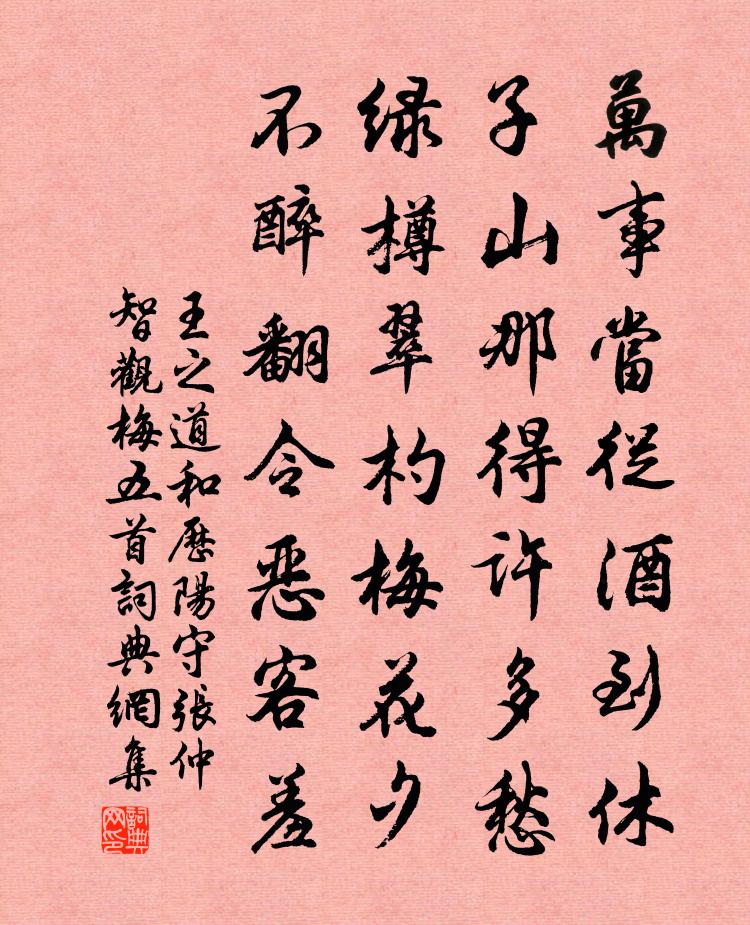 萬事當從酒到休
子山那得許多愁
緑樽翠杓梅花夕
不醉翻令惡客羞
王之道和歷陽守張仲
智觀梅五首詞典網集
詞典网印